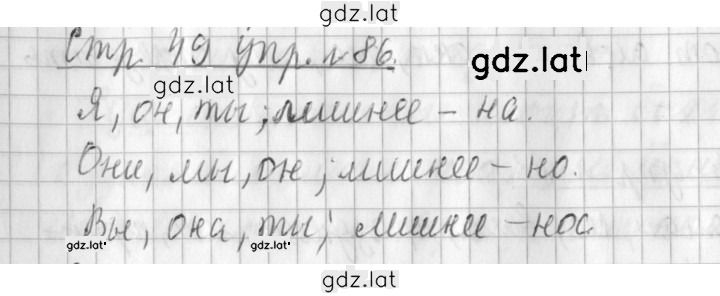 gdz.lat
Стр 49 упр. № 86.
gdz.lat
gdz.lat
Я, он, ты; лишнее – на.
Они, мы, он; лишнее – но.
Вы, она, ты; лишнее – нос
gdz.lat
gdz.lat
gdz.lat